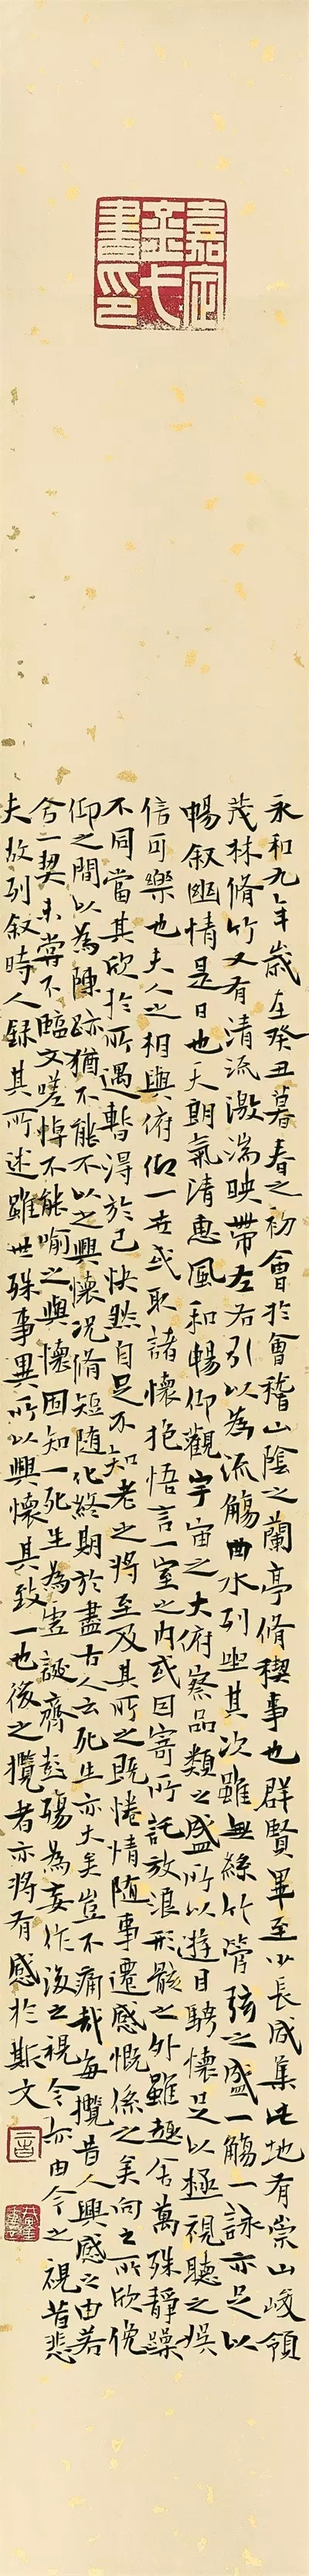 嘉定
書印
永和九年歲在癸丑暮春之初會於會稽山陰之蘭亭脩稧事也群賢畢至少長咸集此地有崇山峻領
茂林脩竹又有清流激湍映帶左右引以為流觴曲水列坐其次雖無絲竹管弦之盛一觴一詠亦足以
暢叙幽情是日也天朗氣清惠風和暢仰觀宇宙之大俯察品類之盛所以遊目騁懷足以極視聽之娛
信可樂也夫人之相與俯仰一世或取諸懷抱悟言一室之內或因寄所託放浪形骸之外雖趣舍萬殊靜躁
不同當其欣於所遇暫得於己快然自足不知老之將至及其所之既惓情隨事遷感慨係之矣向之所欣俛
仰之間以為陳跡猶不能不以之興懷況脩短隨化終期於盡古人云死生亦大矣豈不痛哉每攬昔人興感之由若
合一契未嘗不臨文嗟悼不能喻之與懷固知一死生為虛誕齊彭殤為妄作後之視今亦由今之視昔悲
夫故列叙時人錄其所述雖世殊事異所以興懷其致一也後之攬者亦將有感於斯文